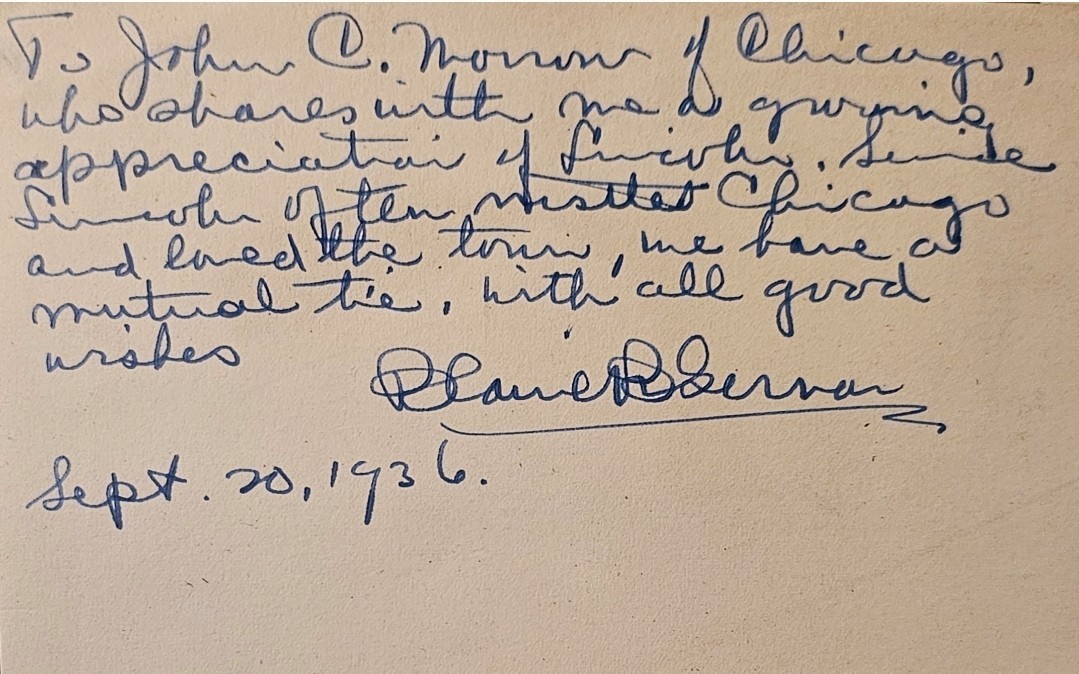 To John C. Morrow of Chicago,
who shares with me a growing
appreciation of Lincoln. Since
Lincoln often visited Chicago
and loved the town, we have a
mutual tie. With all good
wishes
Sept. 20, 1936.